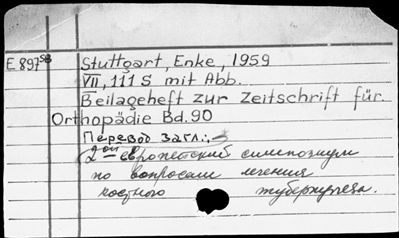 E 897 58 Stuttgart, Enke, 1959
VII, 111 S mit Abb.
Beilageheft zur Zeitschrift für
Orthopädie Bd. 90
Перевод загл.:
2-ой европейский симпозиум
по вопросам лечения
костного туберкулеза.